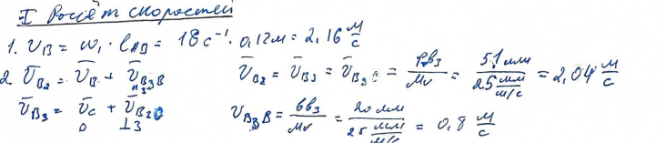 I Росчёт скоростей
1. V_B = ω₁ · l_AB = 18 с⁻¹ · 0,12м = 2,16 м/с
2. V̄_B₂ = V̄_B + V̄_B₃B    V̄_B₂ = V̄_B₃ = V̄_B₃C = Pb₃/Mv = 51 мм/25 мм/м/с = 2,04 м/с
V̄_B₃ = V̄_C + V̄_B₂C    V_B₃B = bb₃/Mv = 20 мм/25 мм/м/с = 0,8 м/с
0 ⊥3